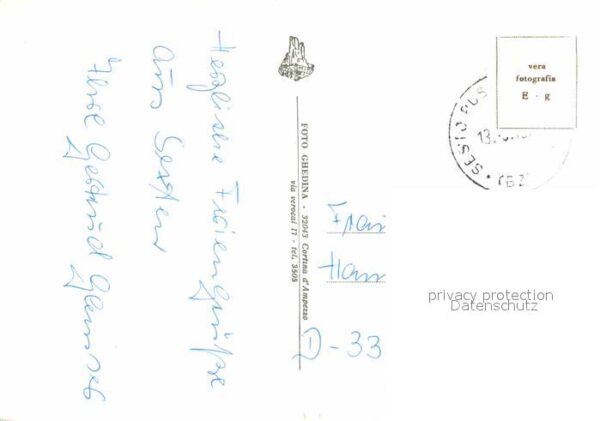 Herzliche Feriengrüße
aus Sexten
Ihre
FOTO GHEDINA - 32043 Cortina d'Ampezzo
via verocai 11 - tel. 3505
vera
fotografia
E - g
SESTO PUS
13.
(BZ)
Frau
Han
D-33
privacy protection
Datenschutz